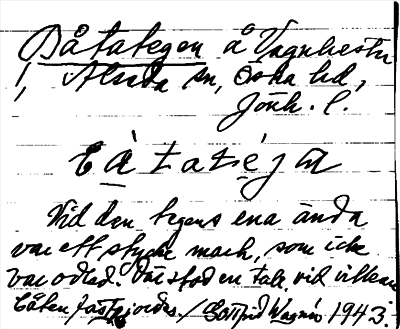 Båtategen å Vagnhester
1, Alseda sn, Östra hd,
Jönk. l.
båtatéja
Vid den tegens ena ända
var ett stycke mark, som icke
var odlad. Där stod en tall, vid vilken
båten fastgjordes. / Gottfrid Wagnér 1943.